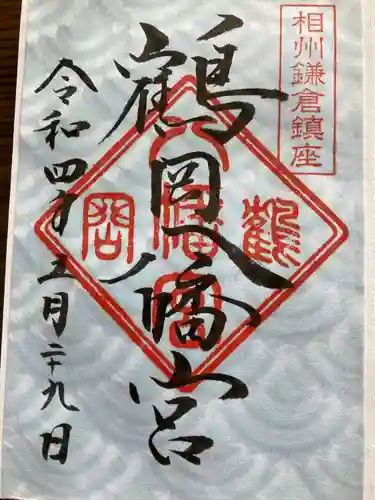 相州鎌倉鎮座
鶴岡八幡宮
令和四年五月二十九日
鶴
岡
八幡宮